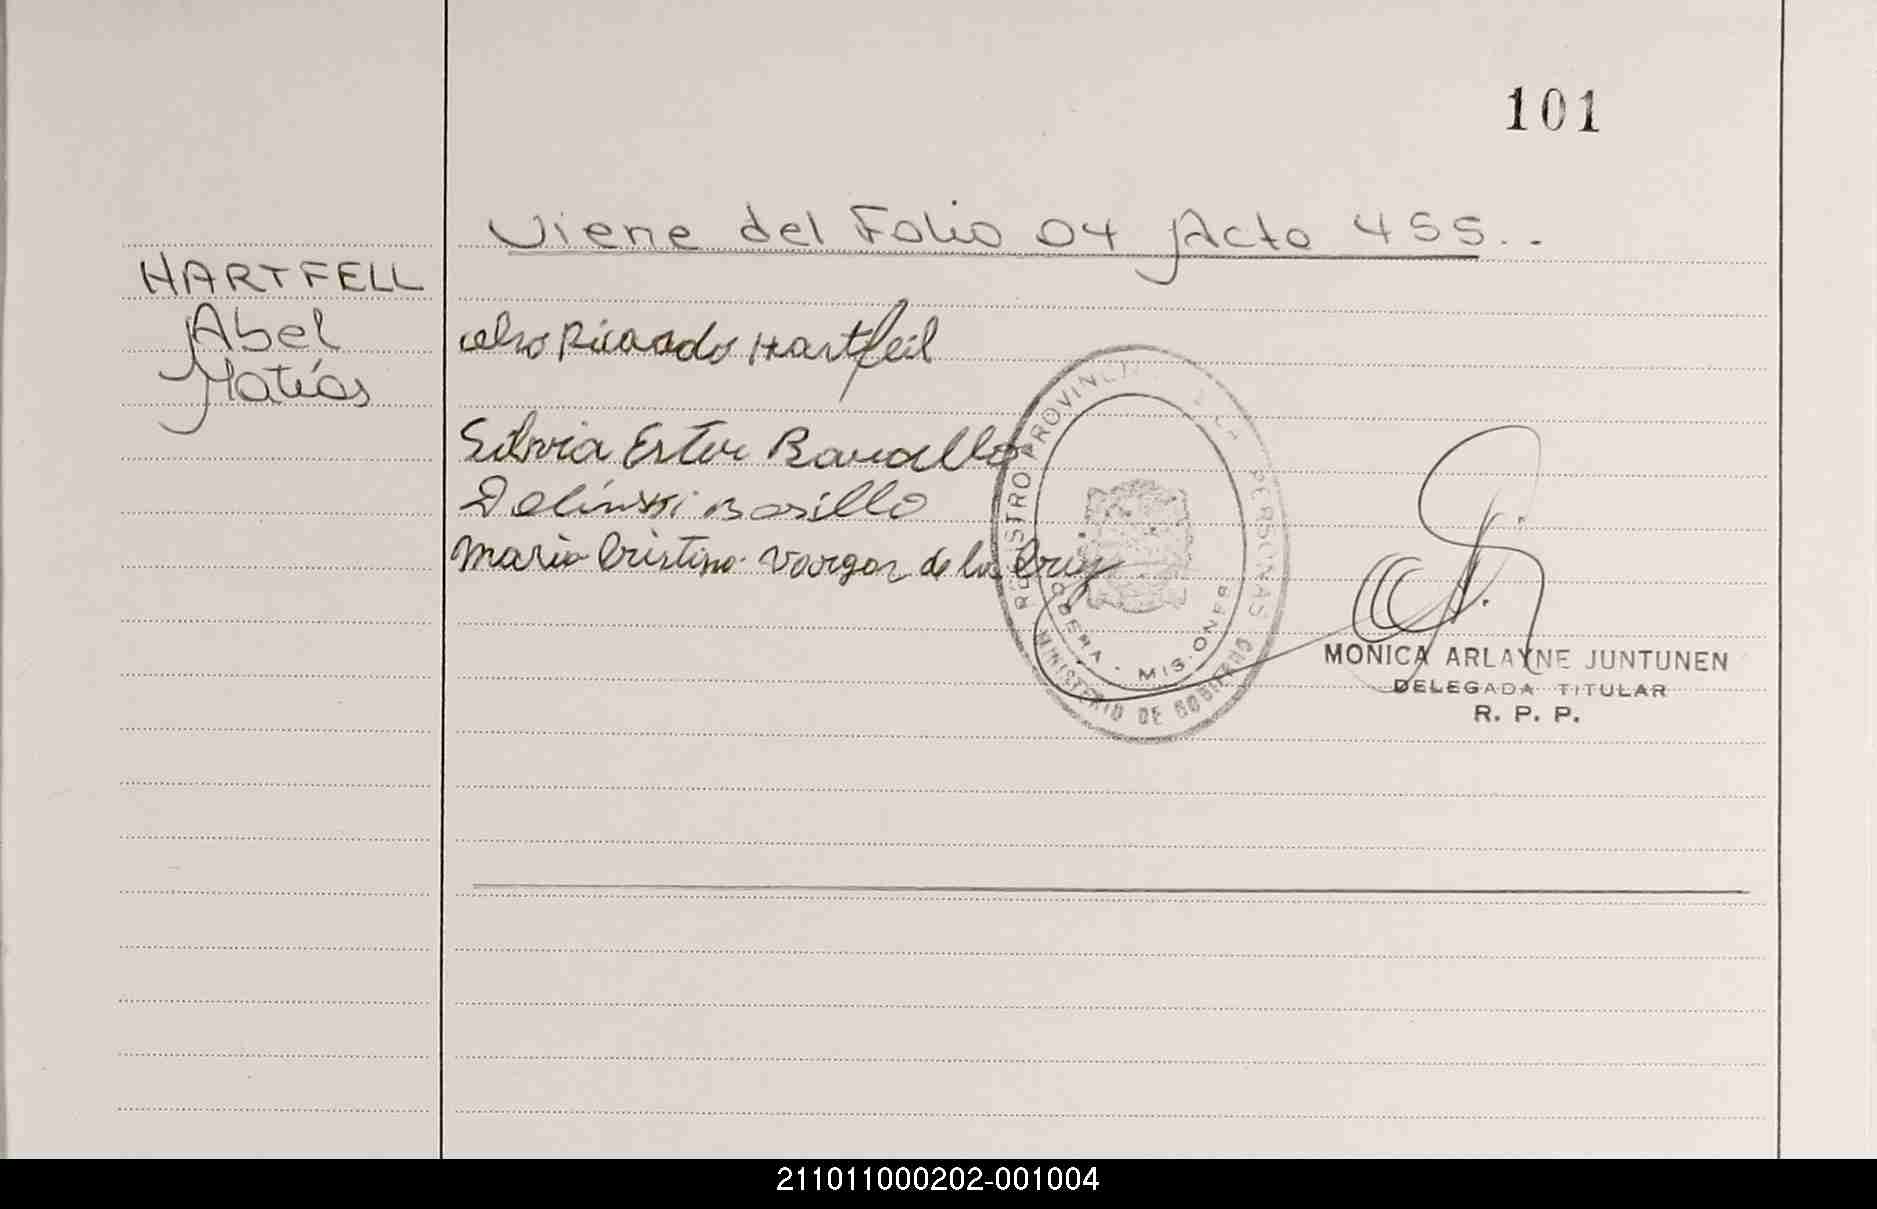 101
Viene del Folio 04 Acta 455..
HARTFELL
Abel
Matías
Ricardo Hartfeil
Silvia Ester
Delinski Basillo
Maria Cristina Vargas de la Cruz
REGISTRO PROVINCIAL DE LAS PERSONAS
OBERA - MISIONES
MINISTERIO DE GOBIERNO
MONICA ARLAYNE JUNTUNEN
DELEGADA TITULAR
R. P. P.
211011000202-001004